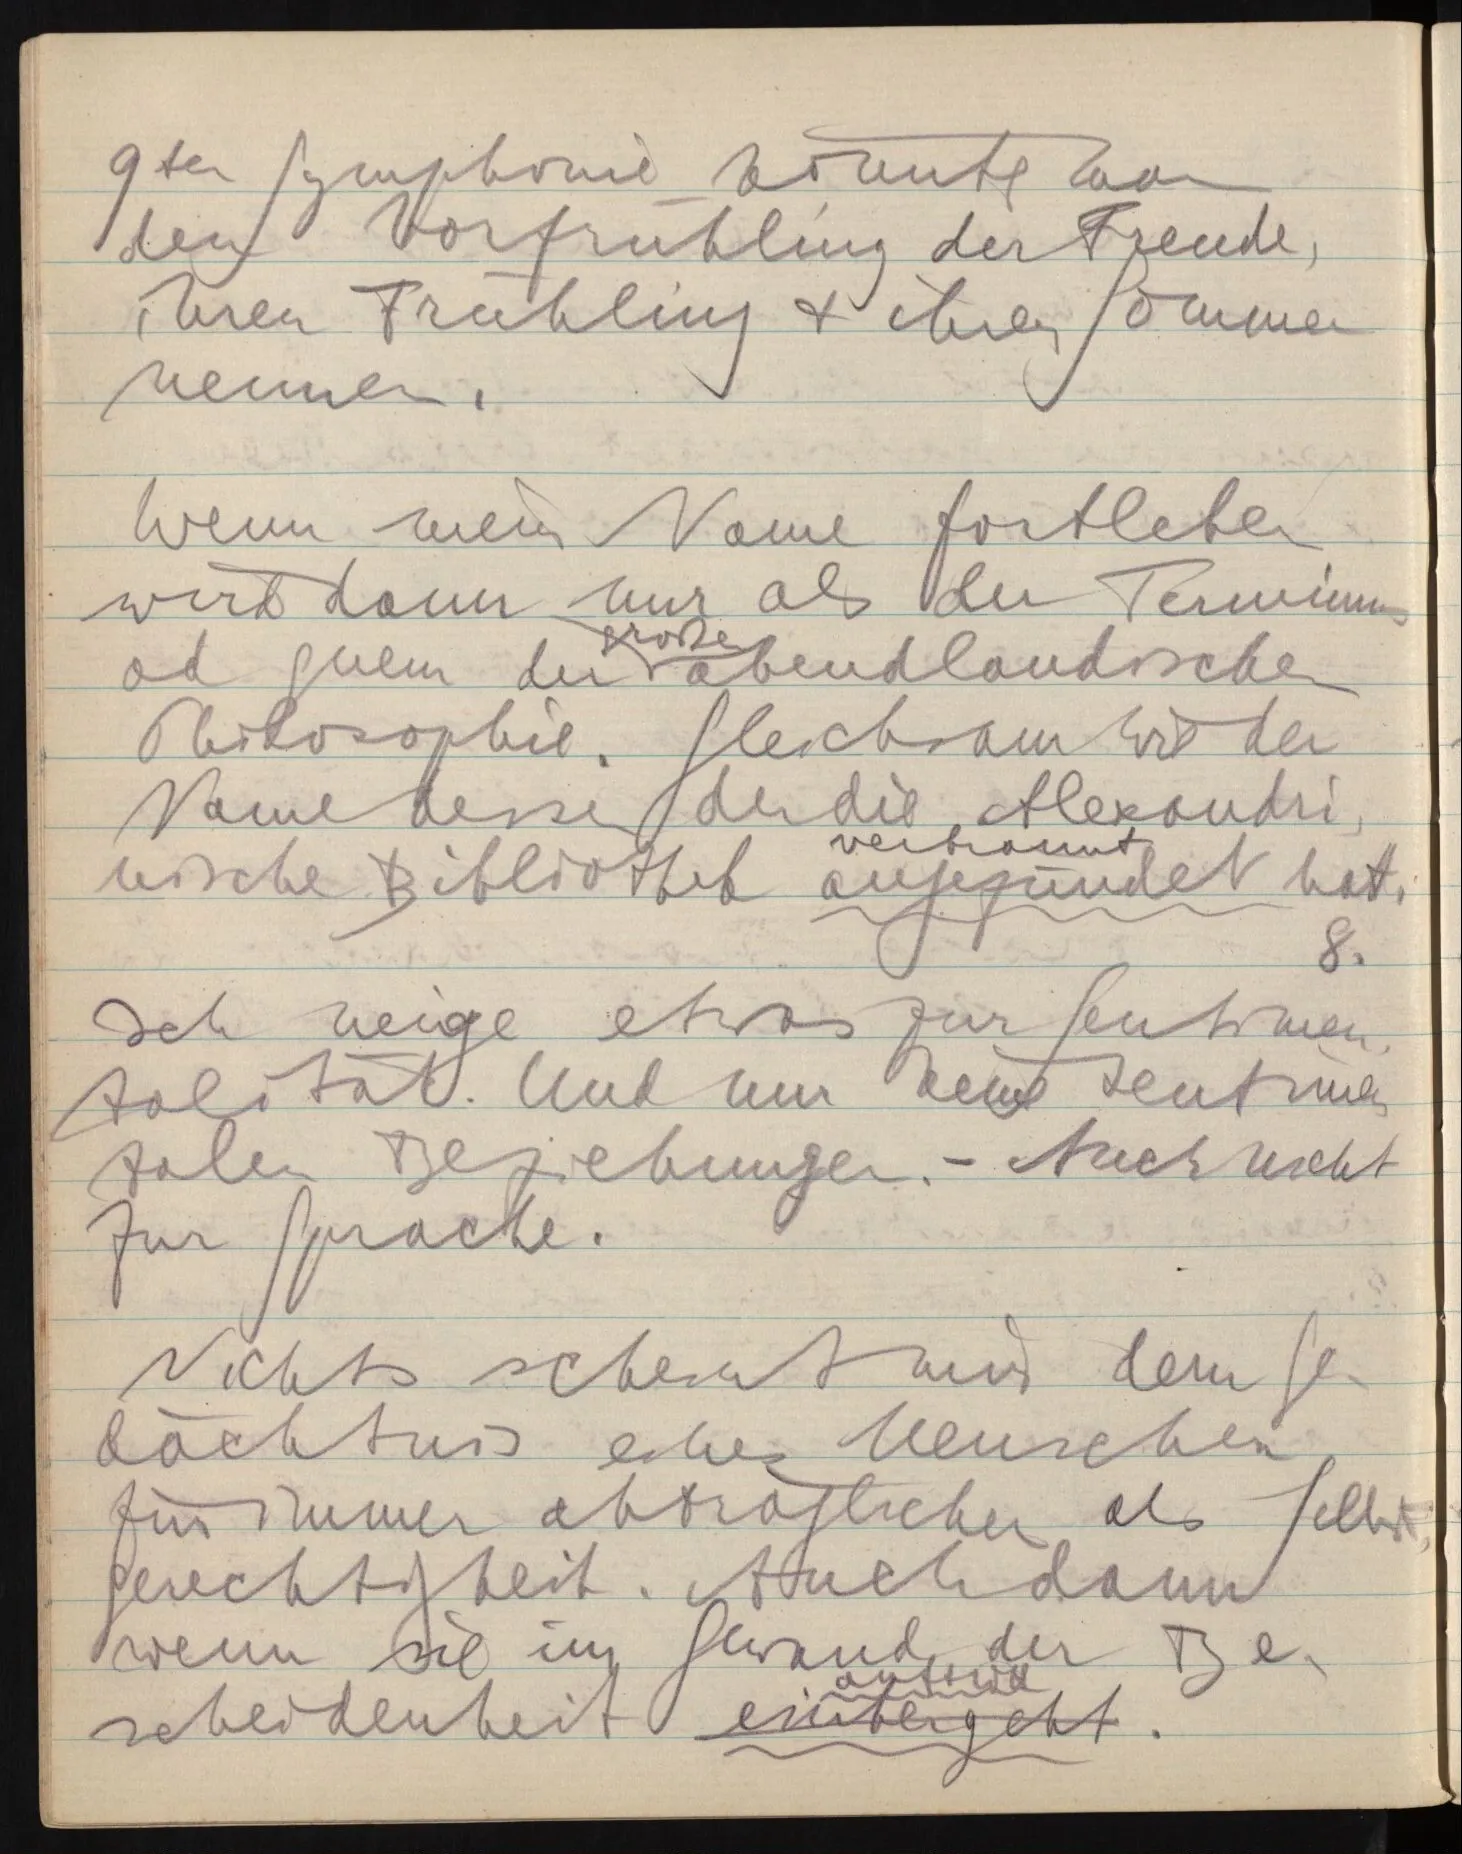 9ten Symphonie könnte man
den Vorfrühling der Freude,
ihren Frühling + ihren Sommer
nennen.
Wenn mein Name fortleben
wird dann nur als der Terminus
ad quem der großen abendländischen
Philosophie. Gleichsam wie der
Name dessen der die Alexandri-
nische Bibliothek
verbrannt
angezündet hat.
8.
Ich neige etwas zur Sentimen-
talität. Und nur keine sentimen
talen Beziehungen. – Auch nicht
zur Sprache.
Nichts scheint mir dem Ge-
dächtnis eines Menschen
für immer abträglicher als Selbst-
gerechtigkeit. Auch dann
wenn sie im Gewand der Be-
auftritt
scheidenheit einhergeht.